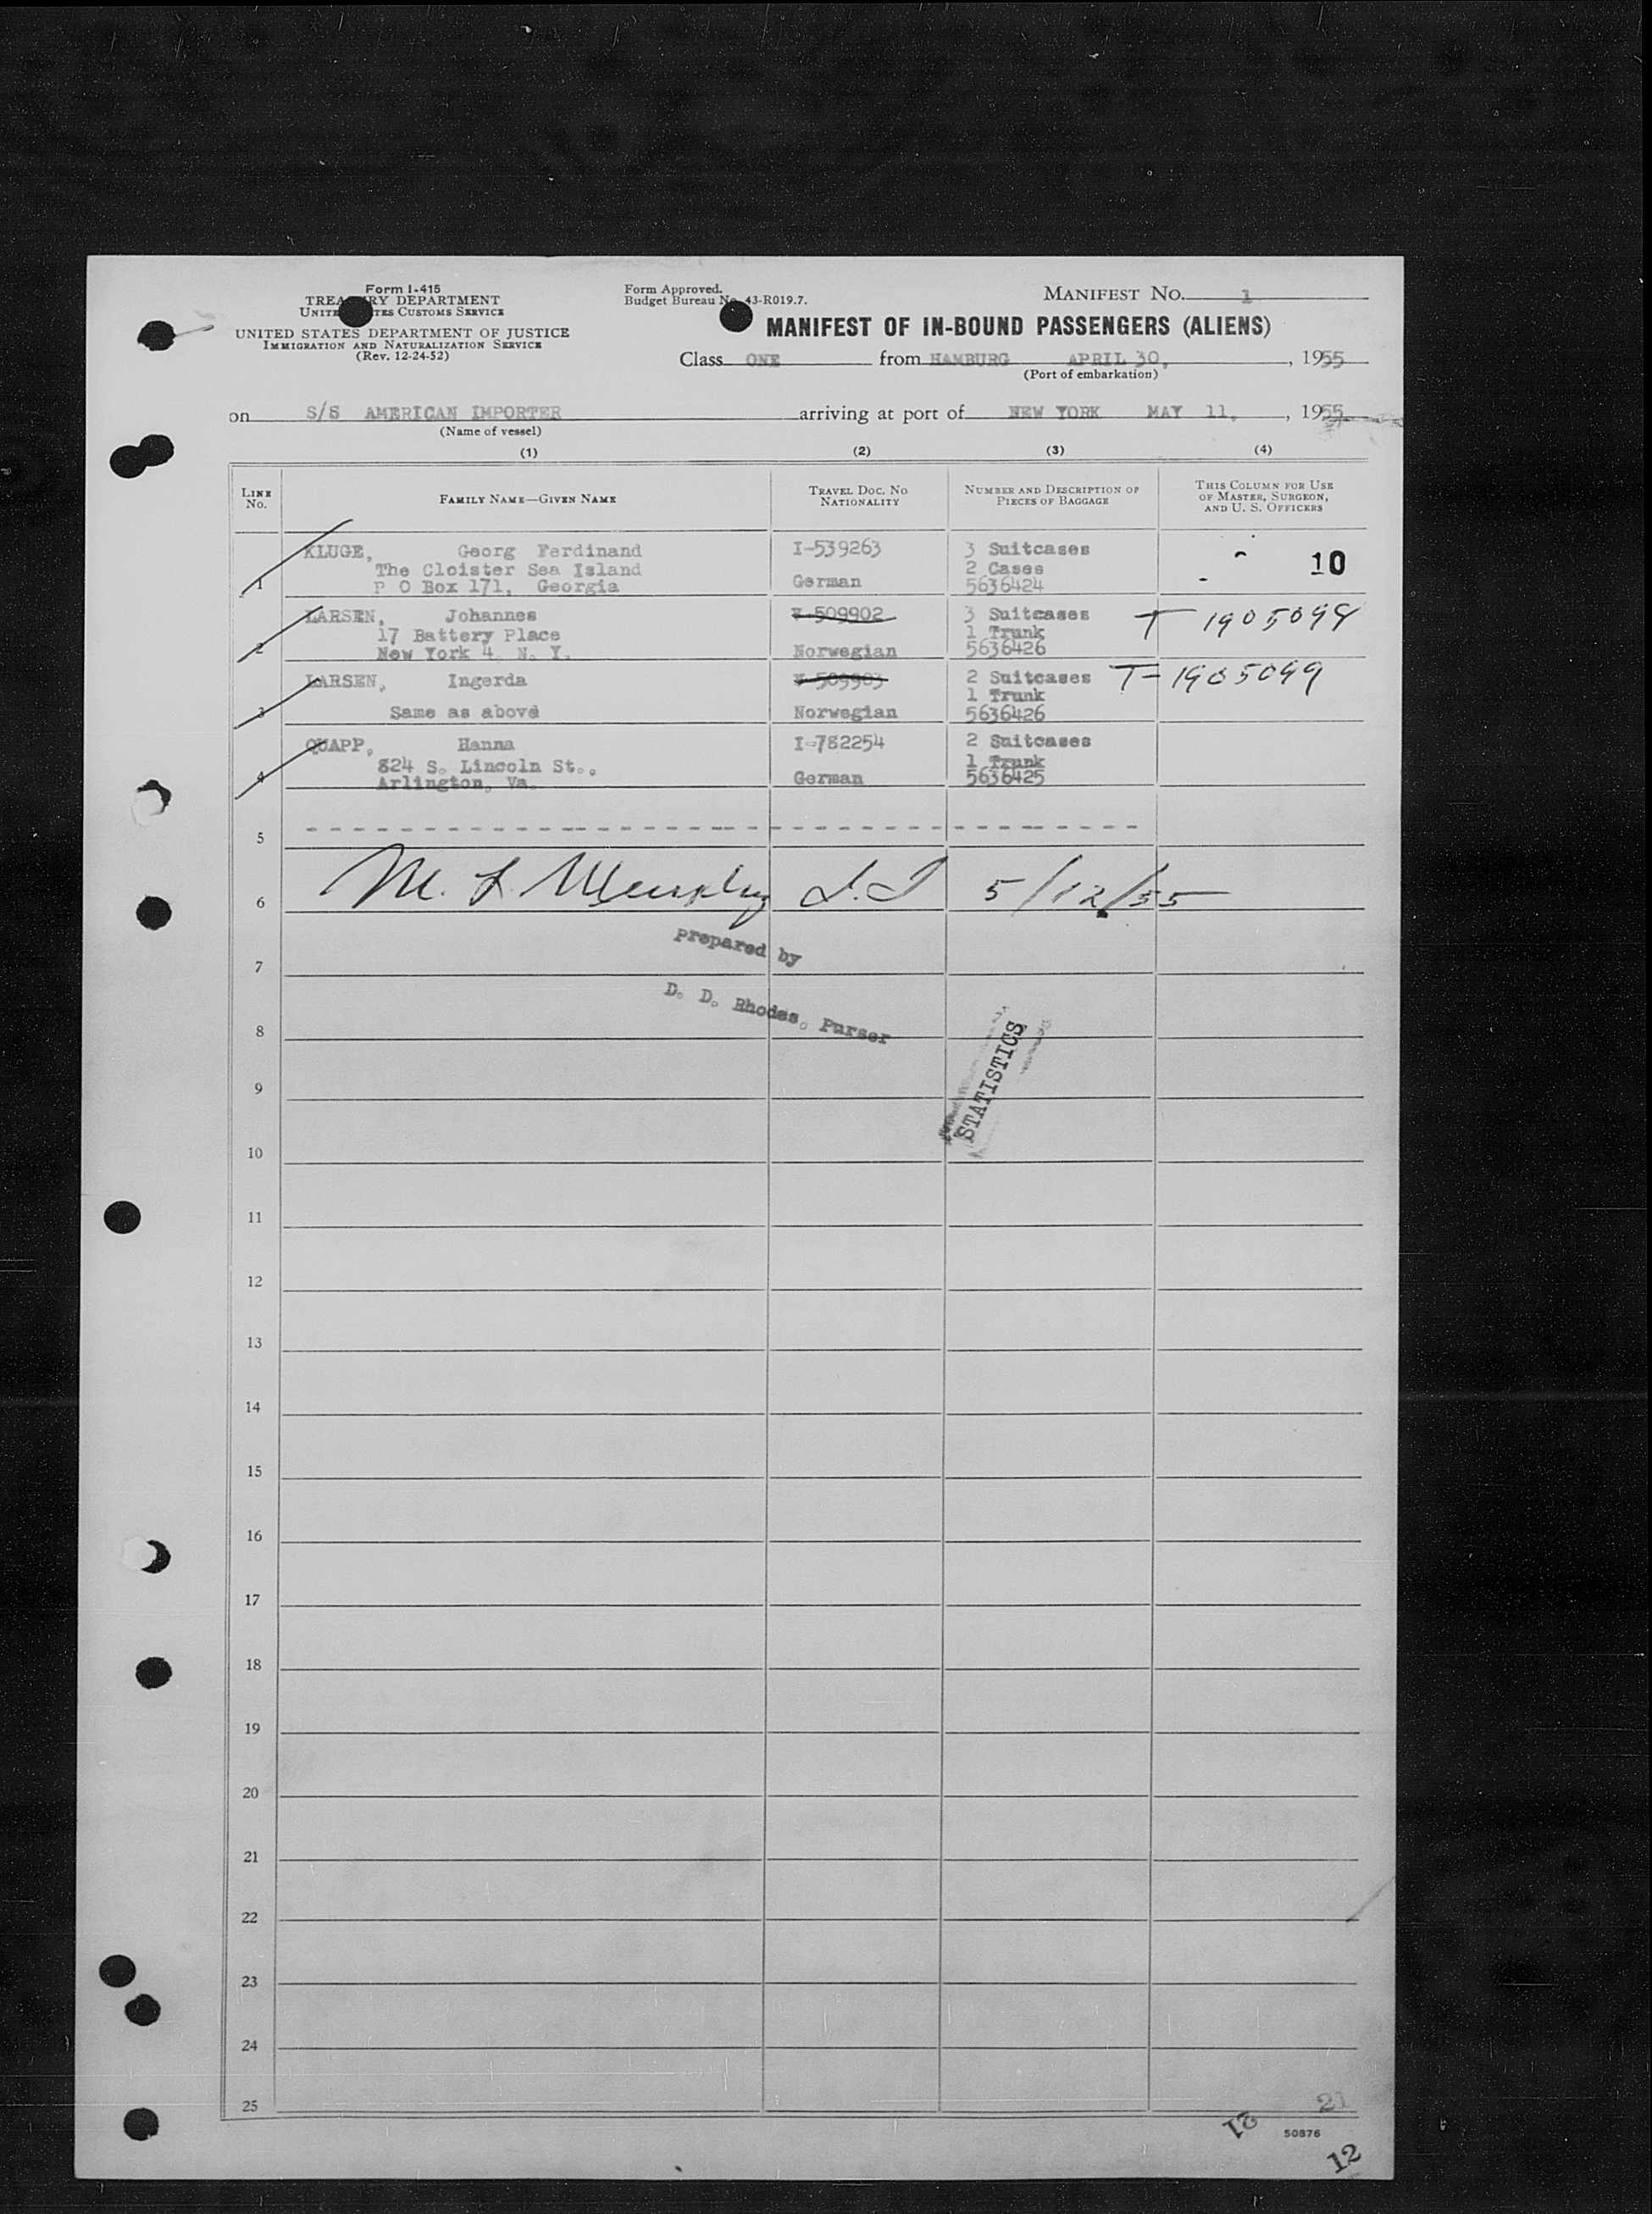 Form I-415
TREASURY DEPARTMENT
UNITED STATES CUSTOMS SERVICE
UNITED STATES DEPARTMENT OF JUSTICE
IMMIGRATION AND NATURALIZATION SERVICE
(Rev. 12-24-52)
Form Approved.
Budget Bureau No. 43-R019.7.
MANIFEST NO. 1
MANIFEST OF IN-BOUND PASSENGERS (ALIENS)
Class ONE from HAMBURG APRIL 30, , 1955
(Port of embarkation)
on S/S AMERICAN IMPORTER arriving at port of NEW YORK MAY 11, , 1955
(Name of vessel)
(1) (2) (3) (4)
LINE No. FAMILY NAME—GIVEN NAME TRAVEL DOC. NO NATIONALITY NUMBER AND DESCRIPTION OF PIECES OF BAGGAGE THIS COLUMN FOR USE OF MASTER, SURGEON, AND U. S. OFFICERS
KLUGE, Georg Ferdinand I-539263 3 Suitcases
The Cloister Sea Island 2 Cases 10
1 P O Box 171, Georgia German 5636424
LARSEN, Johannes V-509902 3 Suitcases T 1905098
17 Battery Place 1 Trunk
2 New York 4, N. Y. Norwegian 5636426
LARSEN, Ingerda V-509903 2 Suitcases T-1905099
1 Trunk
3 Same as above Norwegian 5636426
QUAPP, Hanna I-782254 2 Suitcases
824 S. Lincoln St., 1 Trunk
4 Arlington, Va. German 5636425
5
6 M. L. Murphy I.I 5/12/55
Prepared by
7
D. D. Rhodes, Purser
8
STATISTICS
9
10
11
12
13
14
15
16
17
18
19
20
21
22
23
24
25
21
12
50876
12